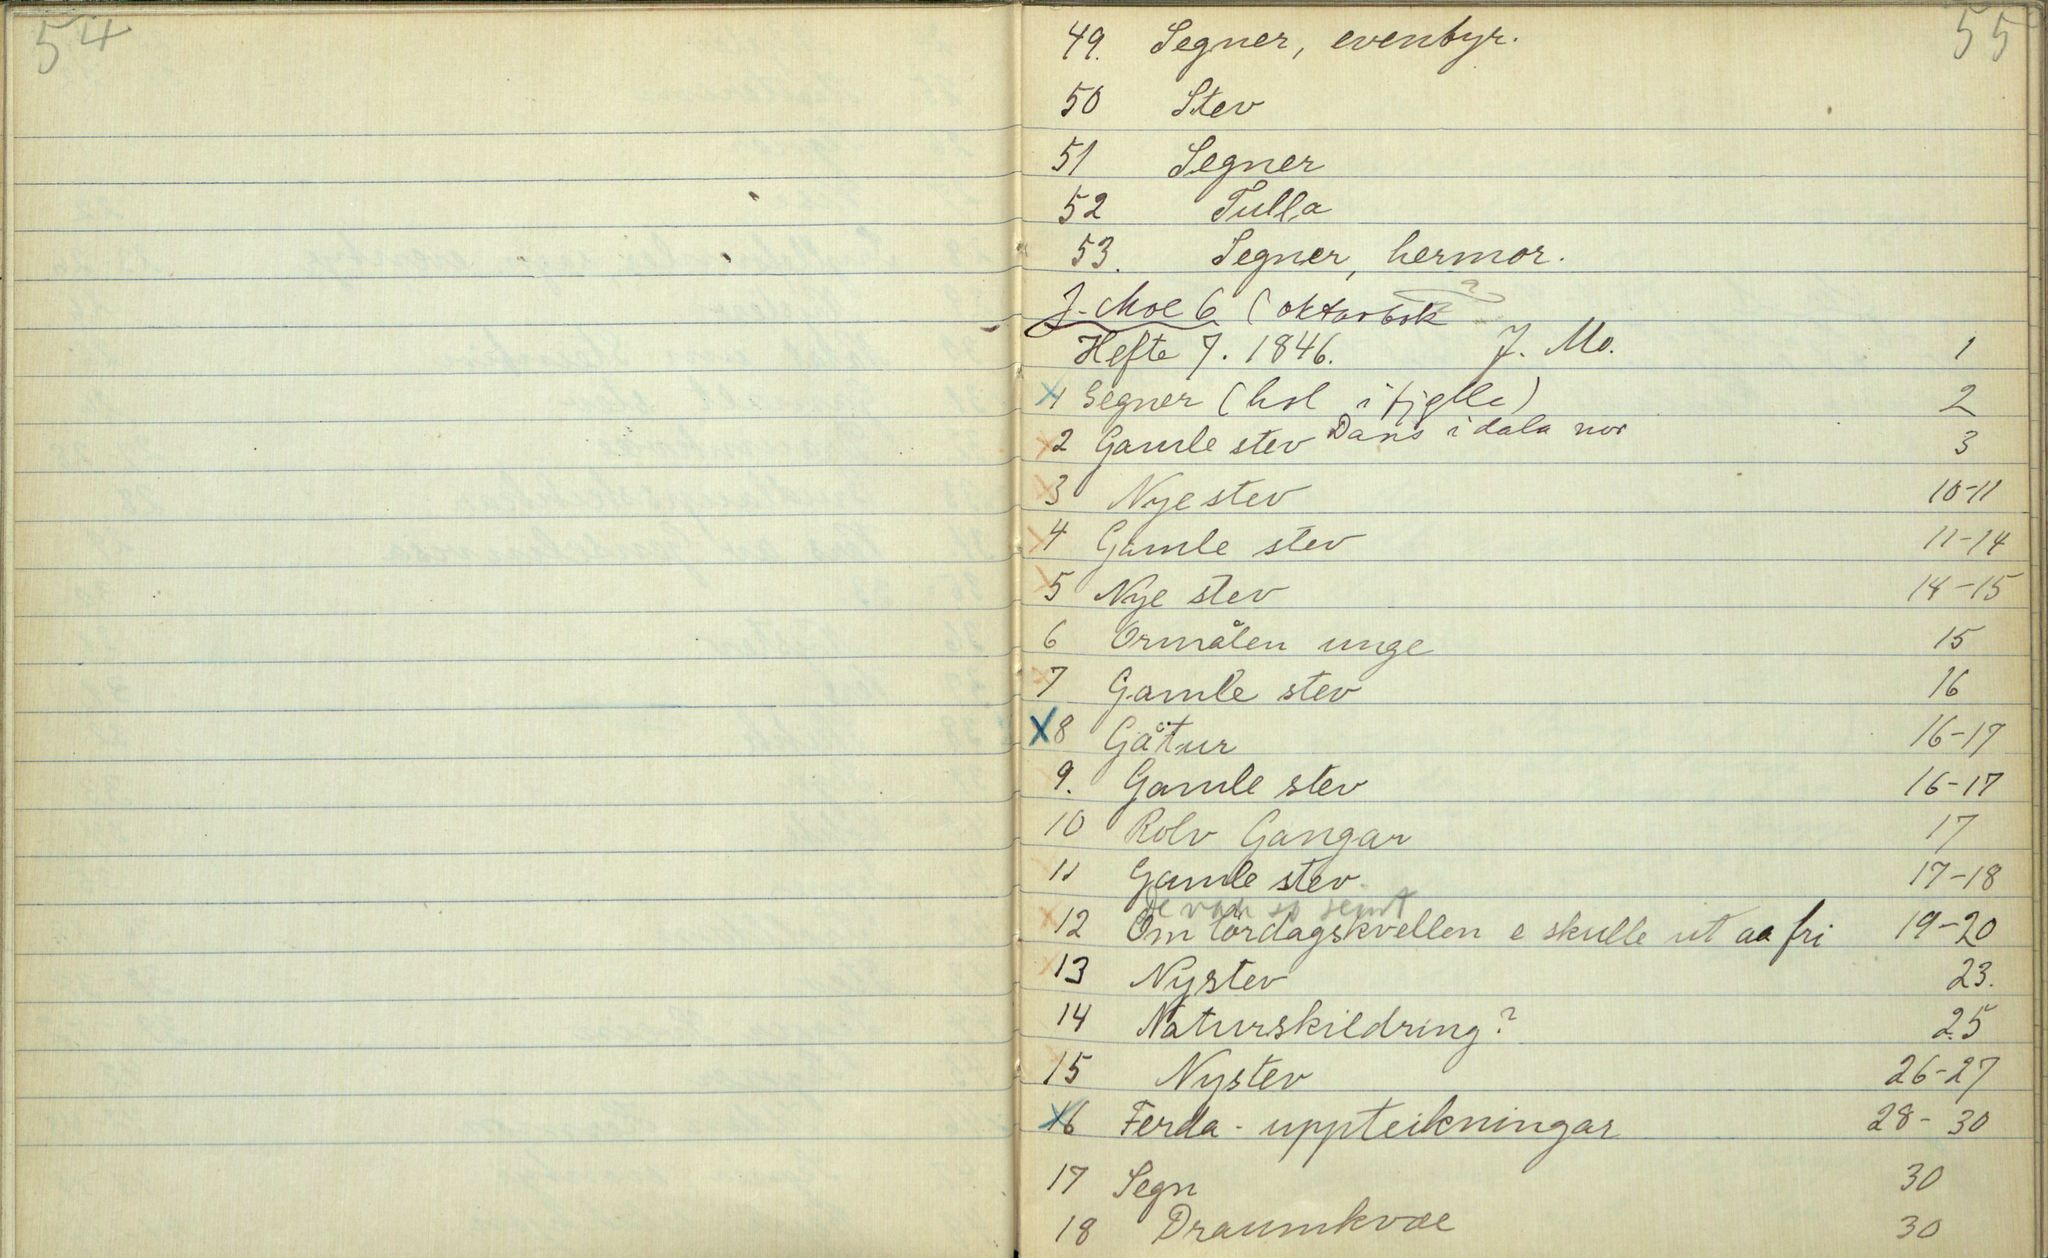 54
55
49. Segner, eventyr.
50 Stev
51 Segner
52 Tulla
53. Segner, hermor.
J. Moe 6 (oktavbok ?
Hefte 7. 1846. J. Mo. 1
x1 Segner (hol i fjelle) 2
x2 Gamle stev Dans i dala nor 3
x3 Nye stev 10-11
x4 Gamle stev 11-14
x5 Nye stev 14-15
6 Ormålen unge 15
x7 Gamle stev 16
X8 Gåtur 16-17
9. Gamle stev 16-17
10 Rolv Gangar 17
11 Gamle stev 17-18
De var so seint
x12 Om lørdagskvellen e skulle ut aa fri 19-20
x13 Nystev 23.
14 Naturskildring? 25
15 Nystev 26-27
x16 Ferda-uppteikningar 28-30
17 Segn 30
18 Draumkvæ 30